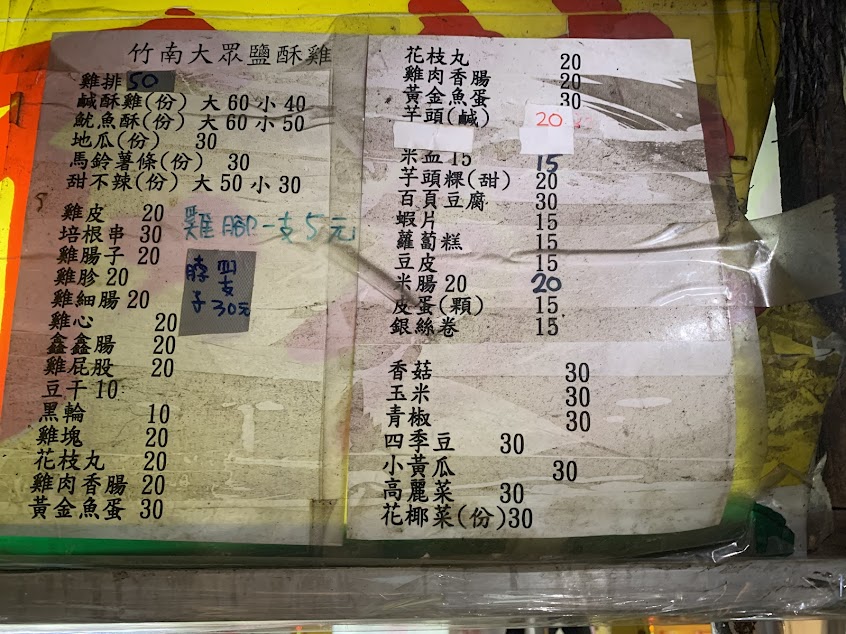 竹南大眾鹽酥雞
雞排 50
鹹酥雞(份) 大60 小40
魷魚酥(份) 大60 小50
地瓜(份) 30
馬鈴薯條(份) 30
甜不辣(份) 大50 小30
雞皮 20
雞腳一支5元
培根串 30
雞腸子 20
雞胗 20
脖子 四支 30元
雞細腸 20
雞心 20
鑫鑫腸 20
雞屁股 20
豆干 10
黑輪 10
雞塊 20
花枝丸 20
雞肉香腸 20
黃金魚蛋 30
花枝丸 20
雞肉香腸 20
黃金魚蛋 30
芋頭(鹹) 20
米血 15 15
芋頭粿(甜) 20
百頁豆腐 30
蝦片 15
蘿蔔糕 15
豆皮 15
米腸 20 20
皮蛋(顆) 15
銀絲卷 15
香菇 30
玉米 30
青椒 30
四季豆 30
小黃瓜 30
高麗菜 30
花椰菜(份)30